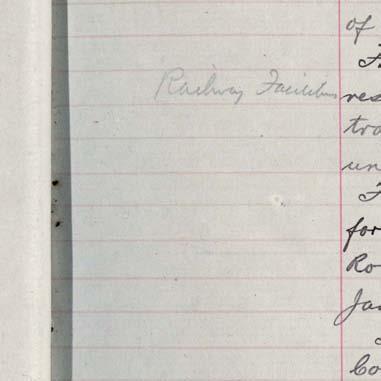 of
Railway Facilities
res
tra
un
for
Ro
Ja
Co